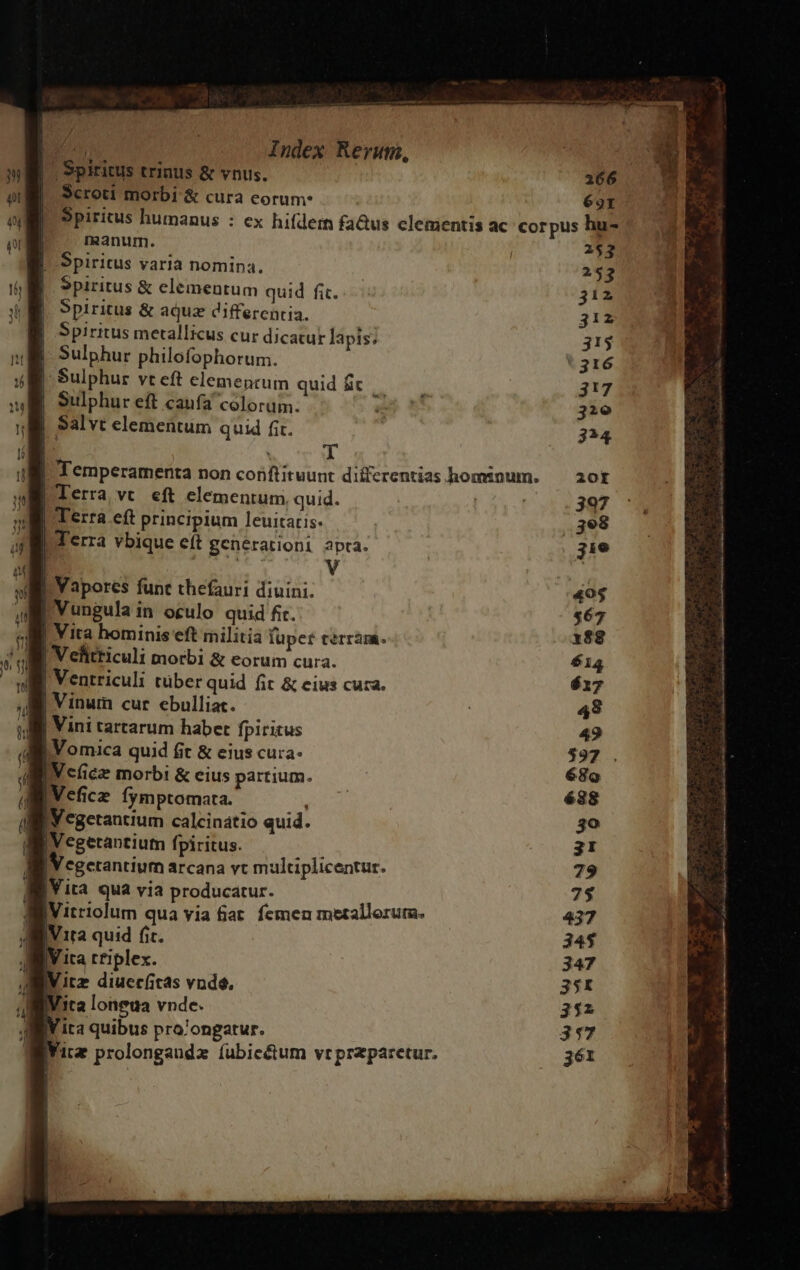 Index Rerum,
Spiritus trinus & vnus. 266
Scroti morbi & cura eorum. 691
Spiritus humanus : ex hiſdem factus elementis ac corpus hu-
manum. 253
Spiritus varia nomina. 253
Spiritus & elementum quid fit. 312
Spiritus & aquæ differentia. 312
Spiritus metallicus cur dicatur lapis. 315
Sulphur philoſophorum. 316
Sulphur vt eſt elementum quid ſit 317
Sulphur eſt cauſa colorum. 320
Sal vt elementum quid fit. 324
T
Temperamenta non conſtituunt differentias hominum. 201
Terra vt eſt elementum, quid. 307
Terra eſt principium leuitatis. 308
Terra vbique eſt generationi apta. 310
V
Vapores ſunt theſauri diuini. 405
Vungula in oculo quid fit. 567
Vita hominis eſt militia ſuper terram. 188
Ventriculi morbi & eorum cura. 614
Ventriculi tuber quid fit & eius cura. 617
Vinum cur ebulliat. 48
Vini tartarum habet ſpiritus 49
Vomica quid ſit & eius cura. 597
Veſicæ morbi & eius partium. 680
Veſicæ ſymptomata. 688
Vegetantium calcinatio quid. 30
Vegetantium ſpiritus. 31
Vegetantium arcana vt multiplicentur. 79
Vita qua via producatur. 75
Vitriolum qua via fiat ſemen metallorum. 437
Vita quid fit. 345
Vita triplex. 347
Vitæ diuerſitas vnde. 351
Vita longua vnde. 352
Vita quibus prolongatur. 357
Vitæ prolongandæ ſubiectum vt præparetur. 361